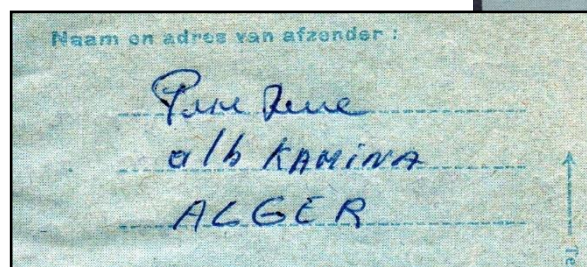 Naam en adres van afzender :
a/b KAMINA
ALGER